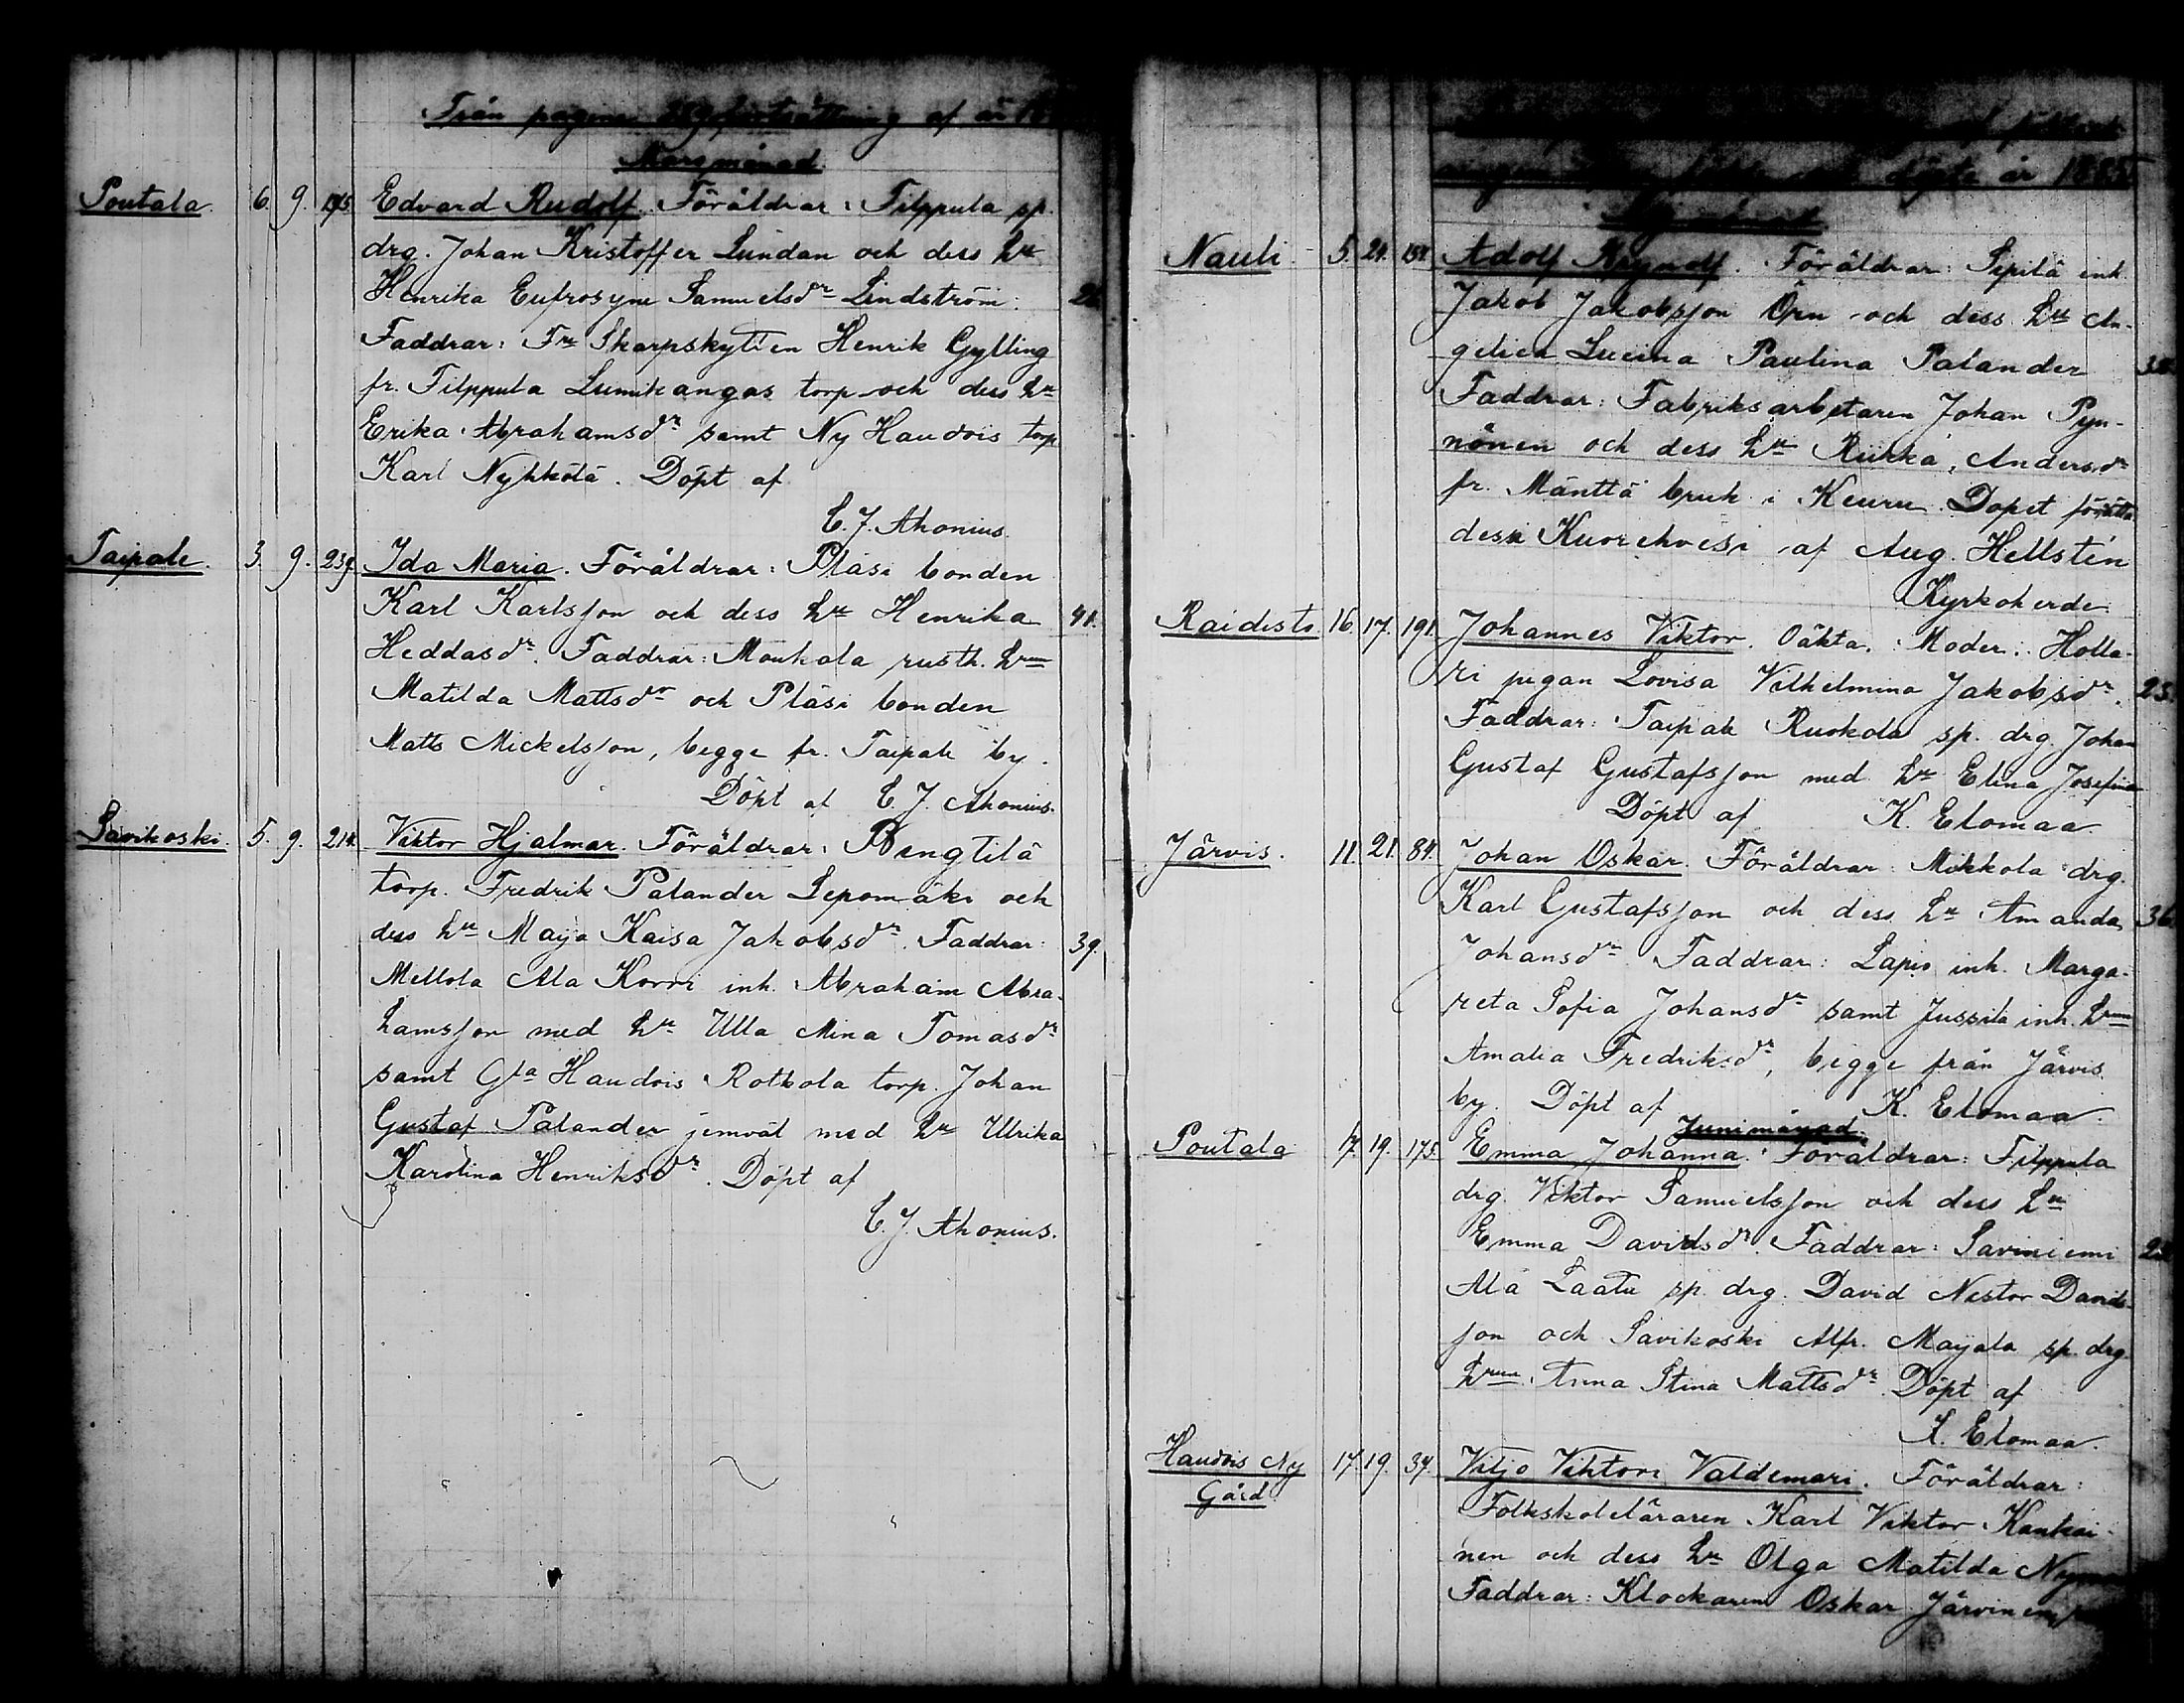 Från pagina fortsättning af år
Marsmånad.
Poutala. 6. 9. 175. Edvard Rudolf. Föräldrar: Filppula sp.
drg. Johan Kristoffer Lundan och dess hu
Henrika Eufrosyne Samuelsdr Lindström. 26.
Faddrar: Fr Skarpskytten Henrik Gylling
fr. Filppula Lumikangas torp och dess hu
Erika Abrahamsdr samt Ny Haudois torp
Karl Nyhkölä. Döpt af
C. J. Ahonius.
Taipale. 3. 9. 239. Ida Maria. Föräldrar: Pläsi bonden
Karl Karlsson och dess hu Henrika 41.
Heddasdr. Faddrar: Moukola rusth. hrun
Matilda Mattsdr och Pläsi bonden
Matts Mickelsson, begge fr. Taipale by.
Döpt af C. J. Ahonius.
Savikoski. 5. 9. 214. Viktor Hjalmar. Föräldrar: Bengtilä
torp. Fredrik Palander Sepomäki och
dess hu Maija Kaisa Jakobsdr. Faddrar: 39.
Mellola Ala Korri inh. Abraham Abra-
hamsson med hu Ulla Mina Tomasdr
samt Gla Haudois Rotkola torp. Johan
Gustaf Palander jemväl med hu Ulrika
Karolina Henriksdr. Döpt af
C. J. Ahonius.
döpte år 1885
Nauli. 5. 24. 151. Adolf Reynolf. Föräldrar: Sipilä inh.
Jakob Jakobsson Örn och dess hu An-
gelica Lucina Paulina Palander
Faddrar: Fabriksarbetaren Johan Pyn-
nönen och dess hu Riikka Andersdr
fr. Mänttä bruk i Keuru. Dopet förätta-
des i Kuorehvesi af Aug. Hellstén
Kyrkoherde.
Raidisto 16. 17. 191. Johannes Viktor. Oäkta. Moder: Holla-
ri pigan Lovisa Vilhelmina Jakobsdr. 25.
Faddrar: Taipale Ruokola sp. drg. Johan
Gustaf Gustafsson med hu Elina Josefina
Döpt af K. Elomaa.
Järvis. 11. 21. 84. Johan Oskar. Föräldrar: Mikkola drg.
Karl Gustafsson och dess hu Amanda 36.
Johansdr. Faddrar: Lapio inh. Marga-
reta Sofia Johansdr samt Jussila inh. hrun
Amalia Fredriksdr, begge från Järvis
by. Döpt af K. Elomaa.
Junimånad.
Poutala 17. 19. 175. Emma Johanna. Föräldrar: Filppula
drg. Viktor Samuelsson och dess hu
Emma Davidsdr. Faddrar: Saviniemi
Ala Laatu sp. drg. David Nestor Davids-
son och Savikoski Alfr. Mayala sp. drg.
hrun Anna Stina Mattsdr. Döpt af
K. Elomaa.
Haudois Ny 17. 19. 37. Viljo Viktori Valdemari. Föräldrar:
Gård
Folkskoleläraren Karl Viktor Kankai-
nen och dess hu Olga Matilda
Faddrar: Klockaren Oskar Järvinen